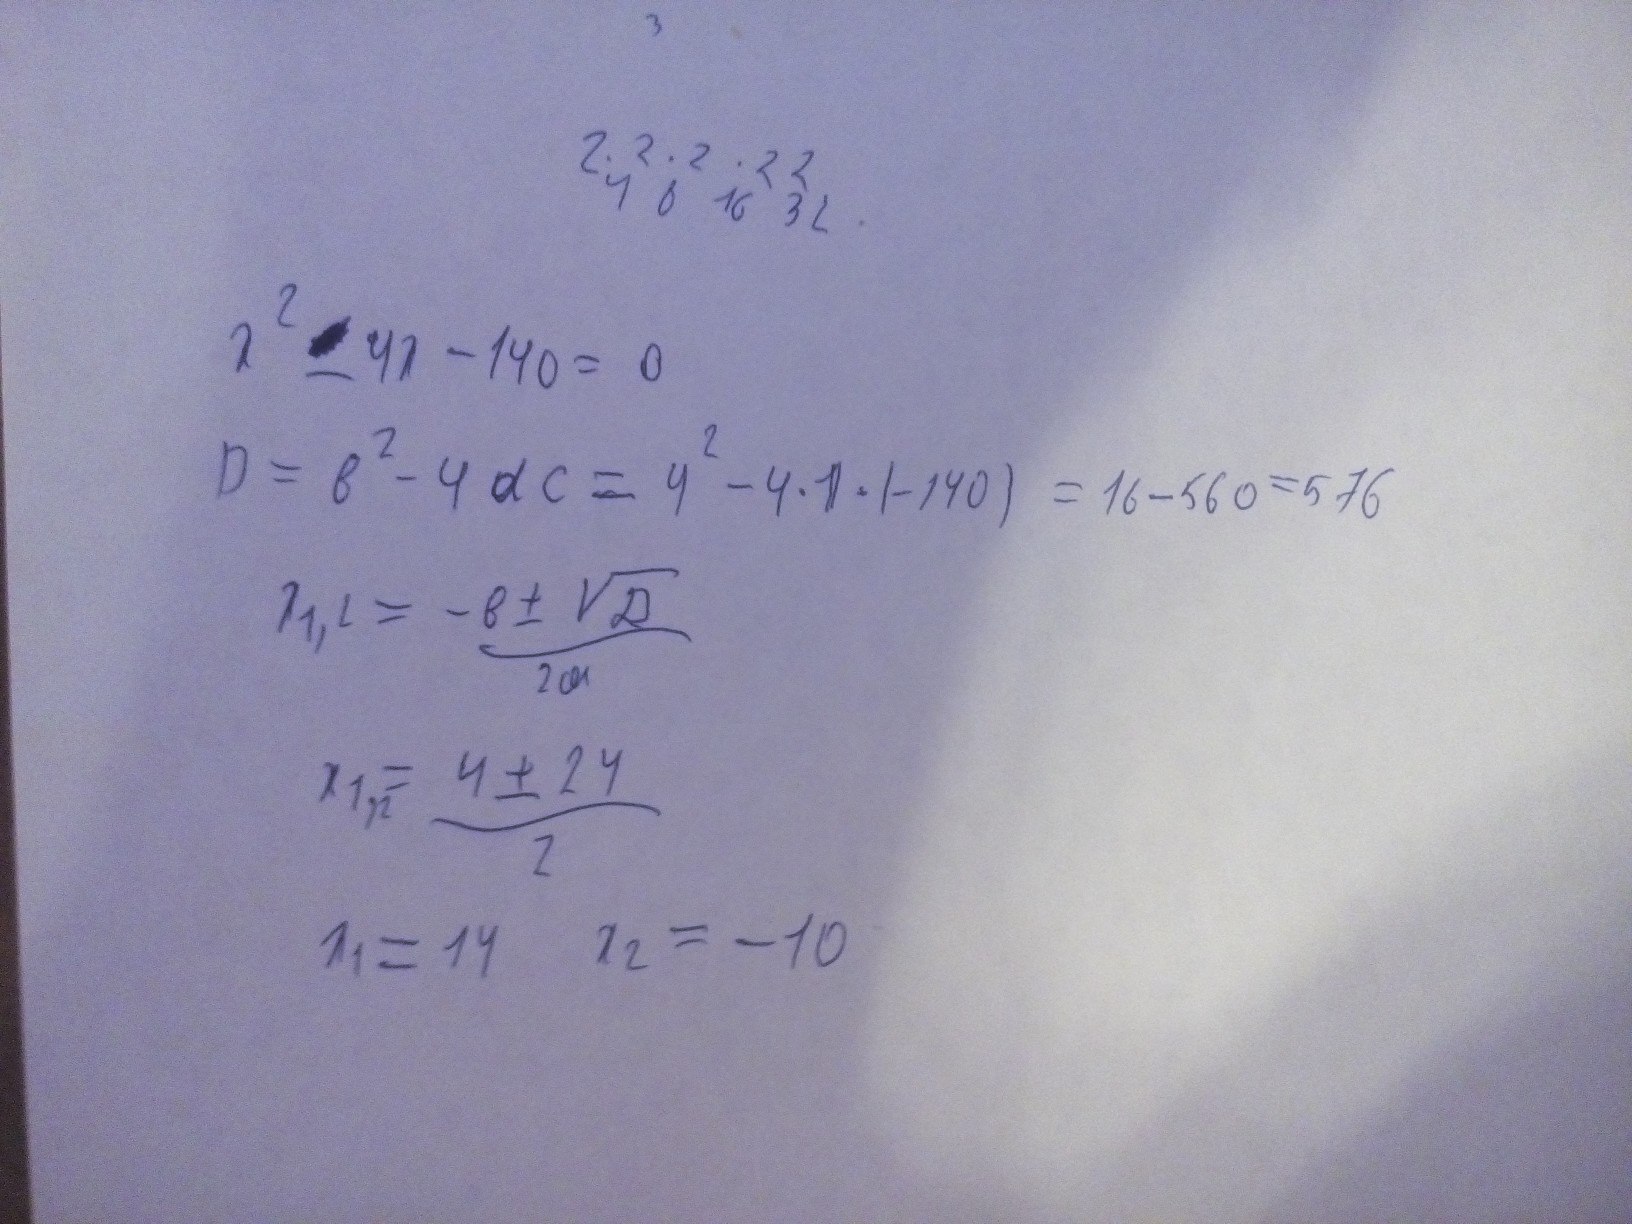 3
2·2·2·22
4 8 16 32.
x² - 4x - 140 = 0
D = b² - 4ac = 4² - 4·1·(-140) = 16 - 560 = 576
x1,2 = -b ± √D
2a
x1,2 = 4 ± 24
2
x1 = 14 x2 = -10